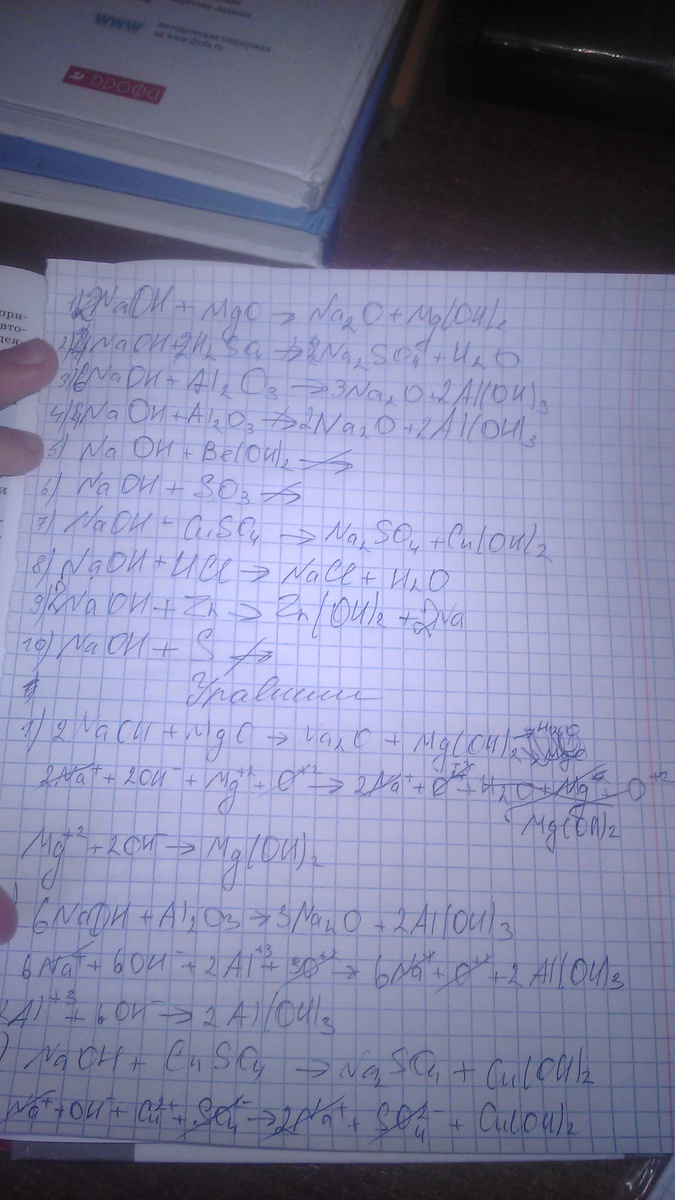 www
методическая поддержка
на www.drofa.ru
дрофа
при-
вто-
1) 2NaOH + MgO → Na₂O + Mg(OH)₂
2) NaOH + H₂SO₄ → Na₂SO₄ + H₂O
3) 6NaOH + Al₂O₃ → 3Na₂O + 2Al(OH)₃
4) NaOH + Al₂O₃ → 2Na₂O + 2Al(OH)₃
5) NaOH + Be(OH)₂ ↛
6) NaOH + SO₃ ↛
7) NaOH + CuSO₄ → Na₂SO₄ + Cu(OH)₂
8) NaOH + HCl → NaCl + H₂O
9) 2NaOH + Zn → Zn(OH)₂ + 2Na
10) NaOH + S ↛
1) 2NaOH + MgO → Na₂O + Mg(OH)₂
2Na⁺ + 2OH⁻ + Mg⁺² + O⁺² → 2Na⁺ + O
Mg(OH)₂
Mg⁺² + 2OH → Mg(OH)₂
) 6NaOH + Al₂O₃ → 3Na₂O + 2Al(OH)₃
6Na⁺ + 6OH⁻ + 2Al⁺³ + 3O⁺² → 6Na⁺ + O⁺² + 2Al(OH)₃
2Al⁺³ + 6OH⁻ → 2Al(OH)₃
) NaOH + CuSO₄ → Na₂SO₄ + Cu(OH)₂
Na⁺ + OH⁻ + Cu²⁺ + SO₄²⁻ → 2Na⁺ + SO₄²⁻ + Cu(OH)₂